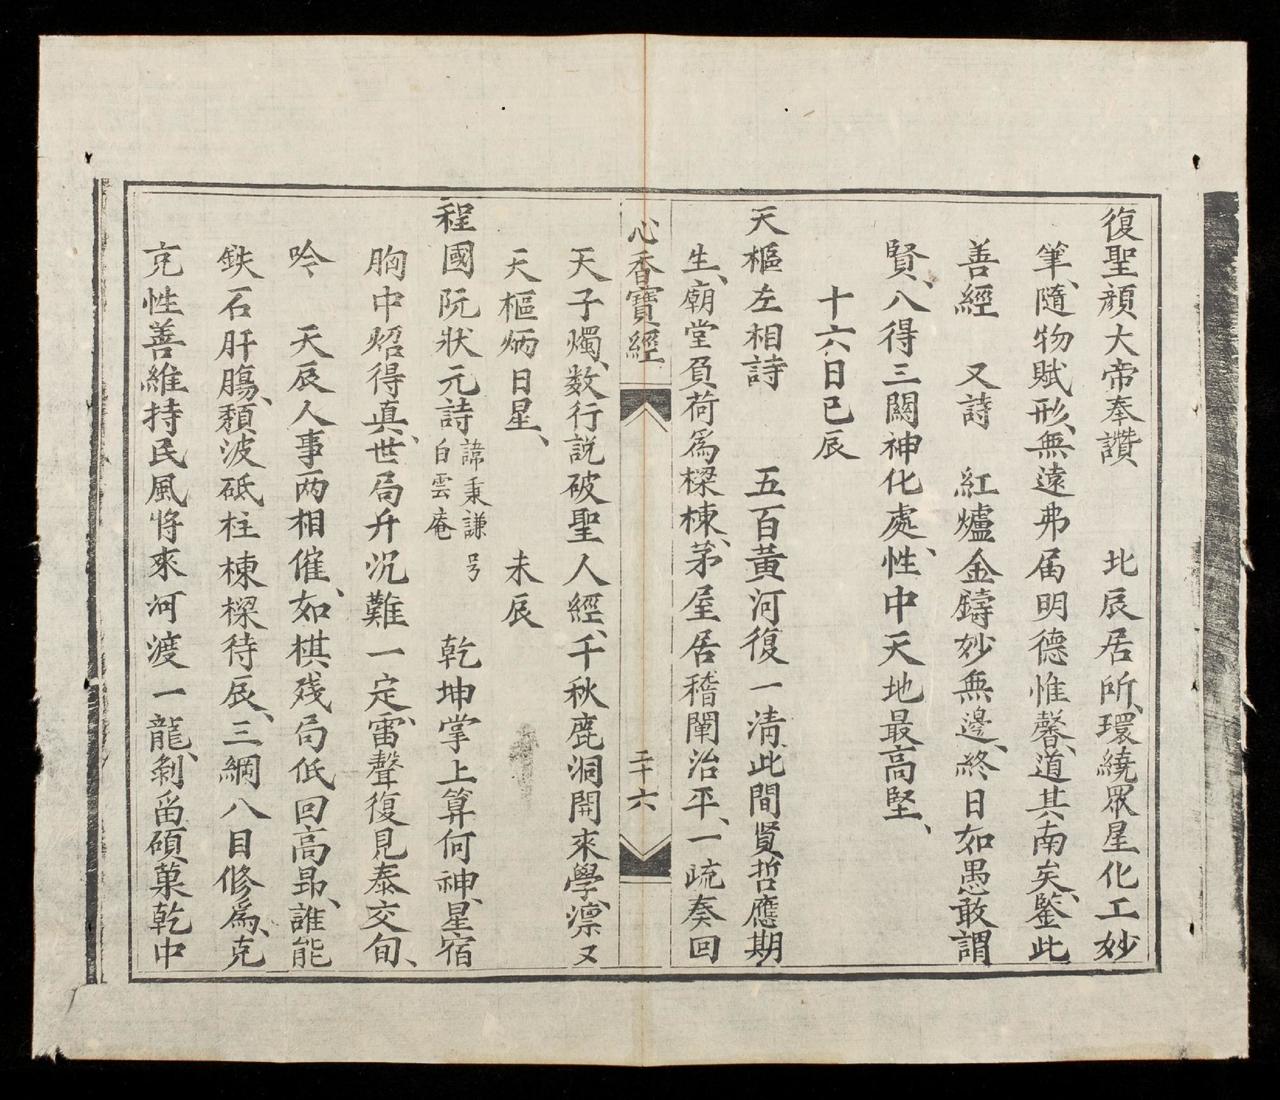 復聖顔大帝奉讃 北辰居所、環繞眾星化工妙
筆、隨物賦形、無遠弗届明德惟馨、道其南矣、鑒此
善經 又詩 紅爐金鑄妙無邊、終日如愚敢謂
賢、八得三闗神化處、性中天地最高堅、
十六日巳辰
天樞左相詩 五百黃河復一清、此間賢哲應期
生、廟堂負荷爲樑棟、茅屋居稽闡治平、一疏奏回
心香寶經 二十六
天子燭、数行説破聖人經、千秋鹿洞開來學、凛又
天樞炳日星、 未辰
程國阮狀元詩 諱秉謙号
白雲庵
乾坤掌上算何神、星宿
胸中炤得真、世局升沉難一定、雷聲復見泰交旬、
吟 天辰人事两相催、如棋残局低回高昂、誰能
鉄石肝膓、頽波砥柱棟樑待辰、三綱八目修爲、克
克性善維持民風将來河渡一龍、剝畱碩菓乾中